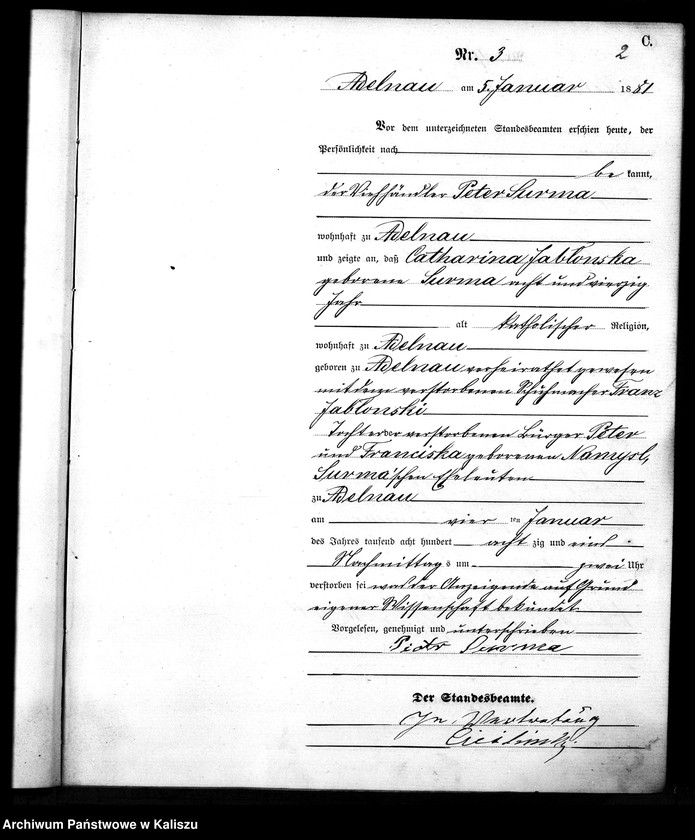 C.
Nr. 3
2
Adelnau am 5. Januar 1881
Vor dem unterzeichneten Standesbeamten erschien heute, der
Persönlichkeit nach
bekannt,
der Viehhändler Peter Surma
wohnhaft zu Adelnau
und zeigte an, daß Catharina Jabłonska
geborene Surma acht und vierzig
Jahr
alt katholischer Religion,
wohnhaft zu Adelnau
geboren zu Adelnau verheirathet gewesen
mit dem verstorbenen Schuhmacher Franz
Jabłonski
Tochter der verstorbenen Bürger Peter
und Franciska geborenen Namysl,
Surma'schen Eheleuten
zu Adelnau
am vier ten Januar
des Jahres tausend acht hundert acht zig und eins
Nachmittags um zwei Uhr
verstorben sei was der Anzeigende auf Grund
eigener Wissenschaft bekundet
Vorgelesen, genehmigt und unterschrieben
Piotr Surma
Der Standesbeamte.
In Vertretung
Archiwum Państwowe w Kaliszu